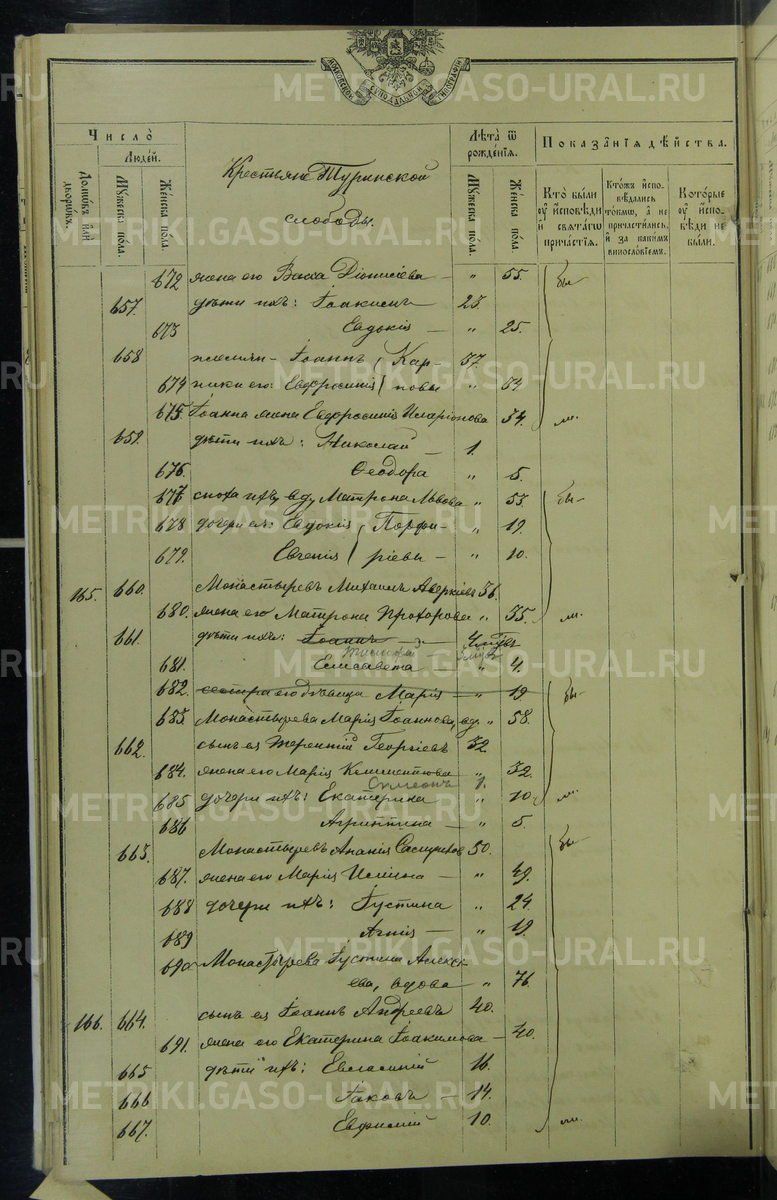 МОСКОВСКОЙ СѴНОДАЛЬНОЙ ТИПОГРАФІИ
Число̀
Людей.
Домѡвъ или дворѡвъ.
Мꙋжеска пола.
Женска пола.
Крестьяне Туринской
слободы.
Лѣта ѿ
рожденїѧ.
Мꙋжеска пола.
Женска пола.
Показанїѧ дѣйства.
Кто были
оу исповѣди
и свѧтагѡ
причастїѧ.
Ктожъ испо-
вѣдались
токмѡ, а не
причастились,
и за какимъ
винословїемъ.
Которые
оу испо-
вѣди не
были.
672 жена его Васса Діонисіева — " 55. бы-
657. дѣти ихъ: Іоакимъ — 23.
673 Евдокія — " 25.
658 племян- Іоаннъ Кар- 37.
674 ники его: Евфросинія повы " 64.
675. Іоанна жена Евфросинія Иларіонова 34. ли.
659. дѣти ихъ: Николай — 1.
676. Ѳеодора " 5.
677 сноха ихъ, вд. Матрона Львова " 53. бы-
678 дочери ея: Евдокія Порфи- " 19.
679. Евгенія ріевы — " 10.
165. 660. Монастыревъ Михаилъ Аверкіевъ 36.
680. жена его Матрона Прохорова " 35. ли.
661. дѣти ихъ: Іоаннъ —
681. Елисавета " 4.
682. сестра его дѣвица Марія — " 19 бы-
683. Монастырева Марія Іоаннова, вд. " 58.
662. сынъ ея Терентій Георгіевъ 32
684. жена его Марія Климентова " 32.
Симеонъ 1.
685 дочери ихъ: Екатерина " 10. ли.
686 Агриппина — " 5.
663. Монастыревъ Ананія 50. бы-
687. жена его Марія — " 49.
688 дочери ихъ: Іустина " 24
689 Агнія — " 19.
690 Монастырева Іустина Алекс-
ева, вдова " 76.
166. 664. сынъ ея Іоаннъ Андреевъ 40.
691. жена его Екатерина Іоакимова — 40.
665 дѣти ихъ: Евгеній 16.
666 Іаковъ — 14.
667. Евфимій 10. ли.
METRIKI.GASO-URAL.RU